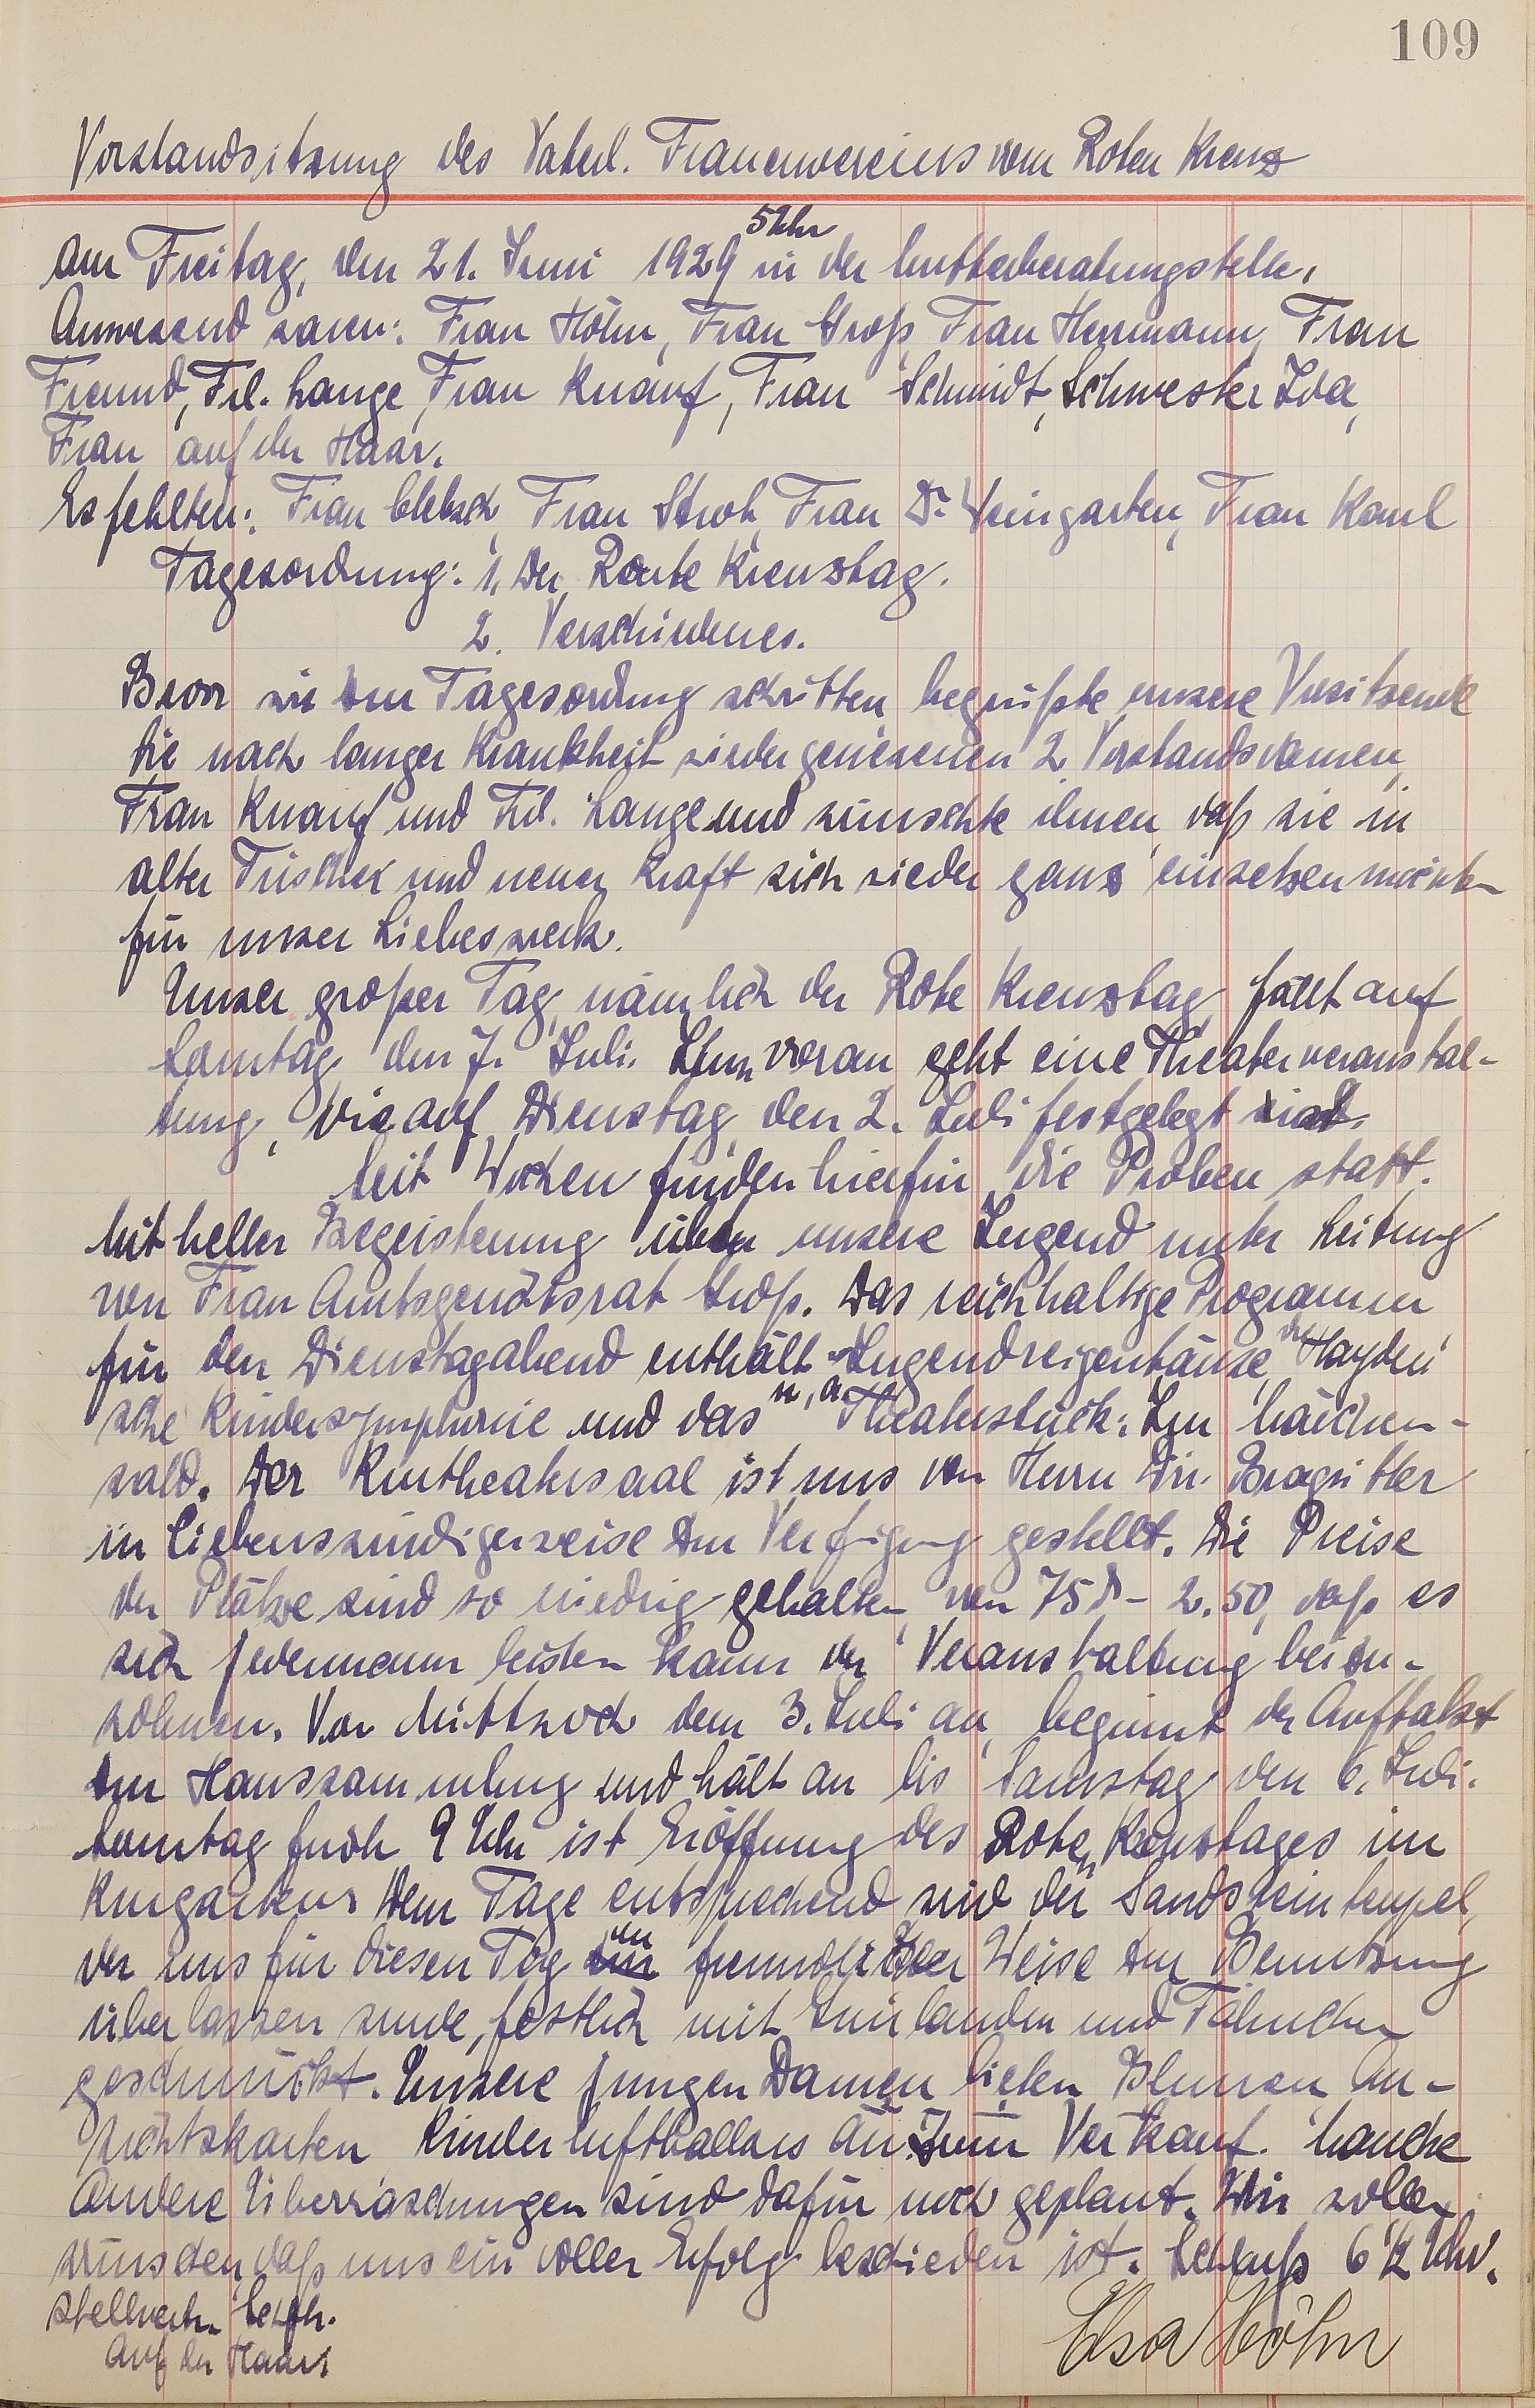 109
Vorstandsitzung des Vaterl. Frauenvereins vom Roten Kreuz
5 Uhr
am Freitag, den 21. Juni 1929 in der Mutterberatungstelle.
Anwesend waren: Frau Höhn, Frau Groß, Frau Herrmann, Frau
Freund, Frl. Lange, Frau Knauf, Frau Schmidt, Schwester Ida,
Frau auf der Haar.
Es fehlten: Frau Clebsch, Frau Stroh, Frau Dr. Weingarten, Frau Kaul
Tagesordnung: 1. Der Roote Kreuztag.
2. Verschiedenes.
Bevor wir zur Tagesordung schritten, begrüßte unsere Vorsitzende
die nach langer Krankheit wiedergenesenen 2 Vorstandsdamen,
Frau Knauf und Frl. Lange und wünschte ihnen, daß sie in
alter Frische und neuer Kraft sich wieder ganz einsetzen möchten
für unser Liebeswerk.
Unser großer Tag, nämlich der Rote Kreuztag, fällt auf
Sonntag, den 7. Juli. Ihm voran geht eine Theaterveranstal-
tung, die auf Dienstag, den 2. Juli festgelegt ist.
Seit Wochen finden hierfür die Proben statt.
Mit heller Begeisterung üben unsere Jugend unter Leitung
von Frau Amtsgerichtsrat Groß. Das reichhaltige Programm
für den Dienstagabend enthält Jugendreigentänze, die Hayden
sche Kindersymphonie und das u. a. Theaterstück: Im Märchen-
wald. Der Kurtheatersaal ist uns von Herrn Dir. Bragritter
in liebenswürdigerweise zur Verfügung gestellt. Die Preise
der Plätze sind so niedrig gehalten, von 75 ₰ - 2.50, daß es
sich jedermann leisten kann der Veranstaltung beizu-
wohnen. Von Mittwoch dem 3. Juli an, beginnt der Auftakt
zur Haussammlung und hält an bis Samstag den 6. Juli.
Sonntag früh 9 Uhr ist Eröffnung des Roten Kreuztages im
Kurgarten. Dem Tage entsprechend wird der Sandsteintempel,
der uns für diesen Tag in freundlicher Weise zur Benutzung
überlassen wurde, festlich mit Guirlanden und Fähnchen
geschmückt. Unsere jungen Damen bieten Blumen, An-
sichtskarten, Kinderluftballons an zum Verkauf. Manche
andere Überraschungen sind dafür noch geplant. Wir wollen
wünschen, daß uns ein voller Erfolg beschieden ist. Schluß 6 1/2 Uhr.
Stellvertr. Schfh.
Auf der Haar
Elsa Höhn